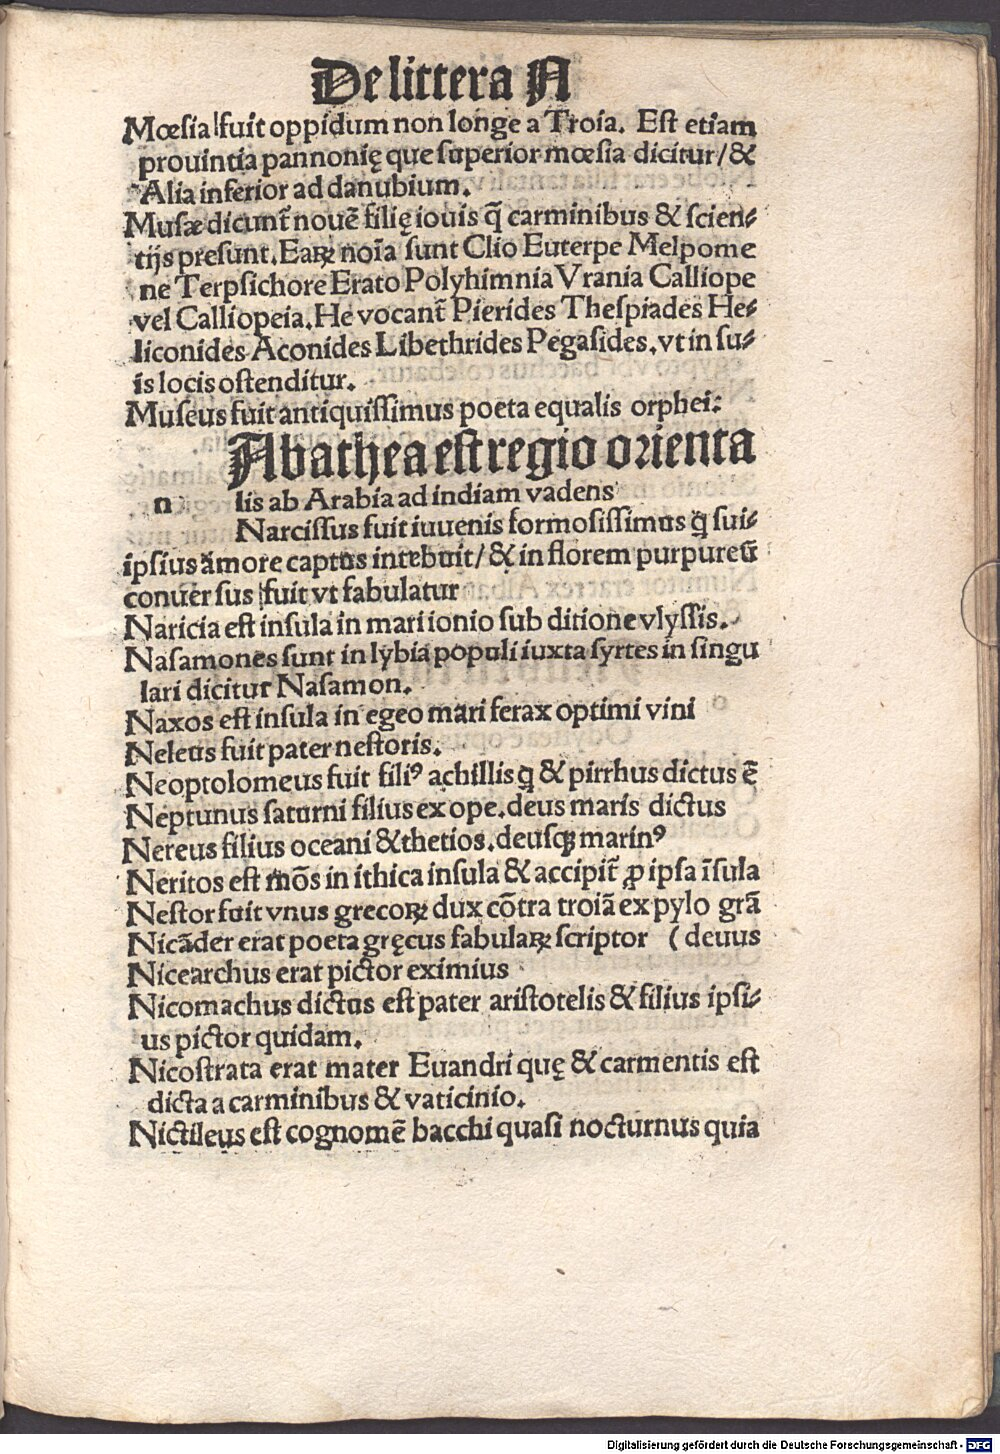 De littera N
Mœsia fuit oppidum non longe a Troia. Est etiam
prouintia pannonię que superior mœsia dicitur/&
Alia inferior ad danubium.
Musæ dicunt̃ nouẽ filię iouis q̃ carminibus & scien⸗
tijs presunt. Eaꝝ noĩa sunt Clio Euterpe Melpome
ne Terpsichore Erato Polyhimnia Vrania Calliope
vel Calliopeia. He vocant̃ Pierides Thespiades He⸗
liconides Aconides Libethrides Pegasides. vt in su⸗
is locis ostenditur.
Museus fuit antiquissimus poeta equalis orphei:
Abathea est regio orienta
n lis ab Arabia ad indiam vadens
Narcissus fuit iuuenis formosissimus q̃ sui⸗
ipsius amore captus intebuit/& in florem purpureũ
conuersus fuit vt fabulatur
Naricia est insula in mari ionio sub ditione vlyssis.
Nasamones sunt in lybia populi iuxta syrtes in singu
lari dicitur Nasamon.
Naxos est insula in egeo mari ferax optimi vini
Neleus fuit pater nestoris.
Neoptolomeus fuit filiꝰ achillis q̃ & pirrhus dictus ẽ
Neptunus saturni filius ex ope. deus maris dictus
Nereus filius oceani & thetios. deusq̃ marinꝰ
Neritos est mõs in ithica insula & accipit̃ ꝓ ipsa ĩsula
Nestor fuit vnus grecoꝝ dux cõtra troiã ex pylo grã
Nicãder erat poeta gręcus fabulaꝝ scriptor (deuus
Nicearchus erat pictor eximius
Nicomachus dictus est pater aristotelis & filius ipsi⸗
us pictor quidam.
Nicostrata erat mater Euandri quę & carmentis est
dicta a carminibus & vaticinio.
Nictileus est cognomẽ bacchi quasi nocturnus quia
Digitalisierung gefördert durch die Deutsche Forschungsgemeinschaft - DFG